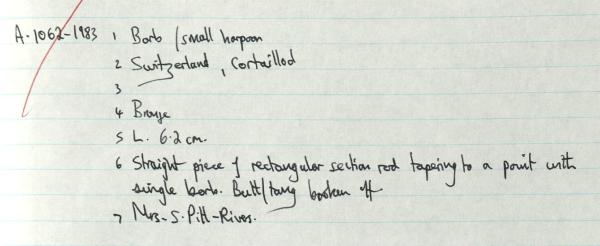 A.1062-1983 1 Barb / small harpoon
2 Switzerland, Cortaillod
3
4 Bronze
5 L. 6.2 cm.
6 Straight piece of rectangular section rod tapering to a point with
single barb. Butt/tang broken off
7 Mrs. S. Pitt-Rivers.